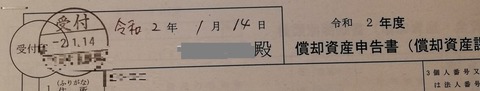 受付
-2.1.14
受付印
令和2年1月14日
殿
令和 2 年度
償却資産申告書(償却資産課
(ふりがな)
1 住 所
3 個人番号又
は法人番号